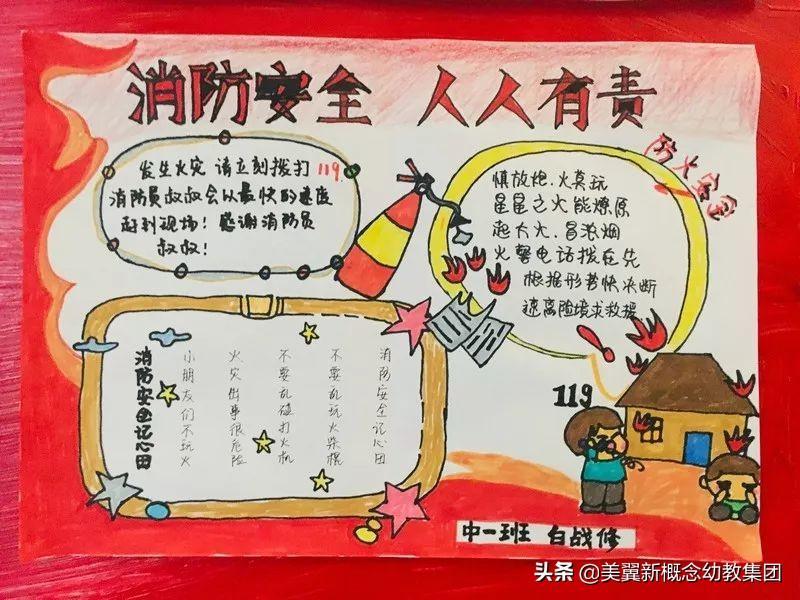 消防安全 人人有责
发生火灾 请立刻拨打119.
消防员叔叔会以最快的速度
赶到现场！感谢消防员
叔叔！
防火安全
慎放炮.火莫玩
星星之火能燎原
起大火.冒浓烟
火警电话拨在先
根据形势快决断
速离险境求救援.
消防安全记心田
小朋友们不玩火
火灾出事很危险
不要乱碰打火机
不要乱玩火柴棍
消防安全记心田
119
中一班 白战修
头条 @美翼新概念幼教集团